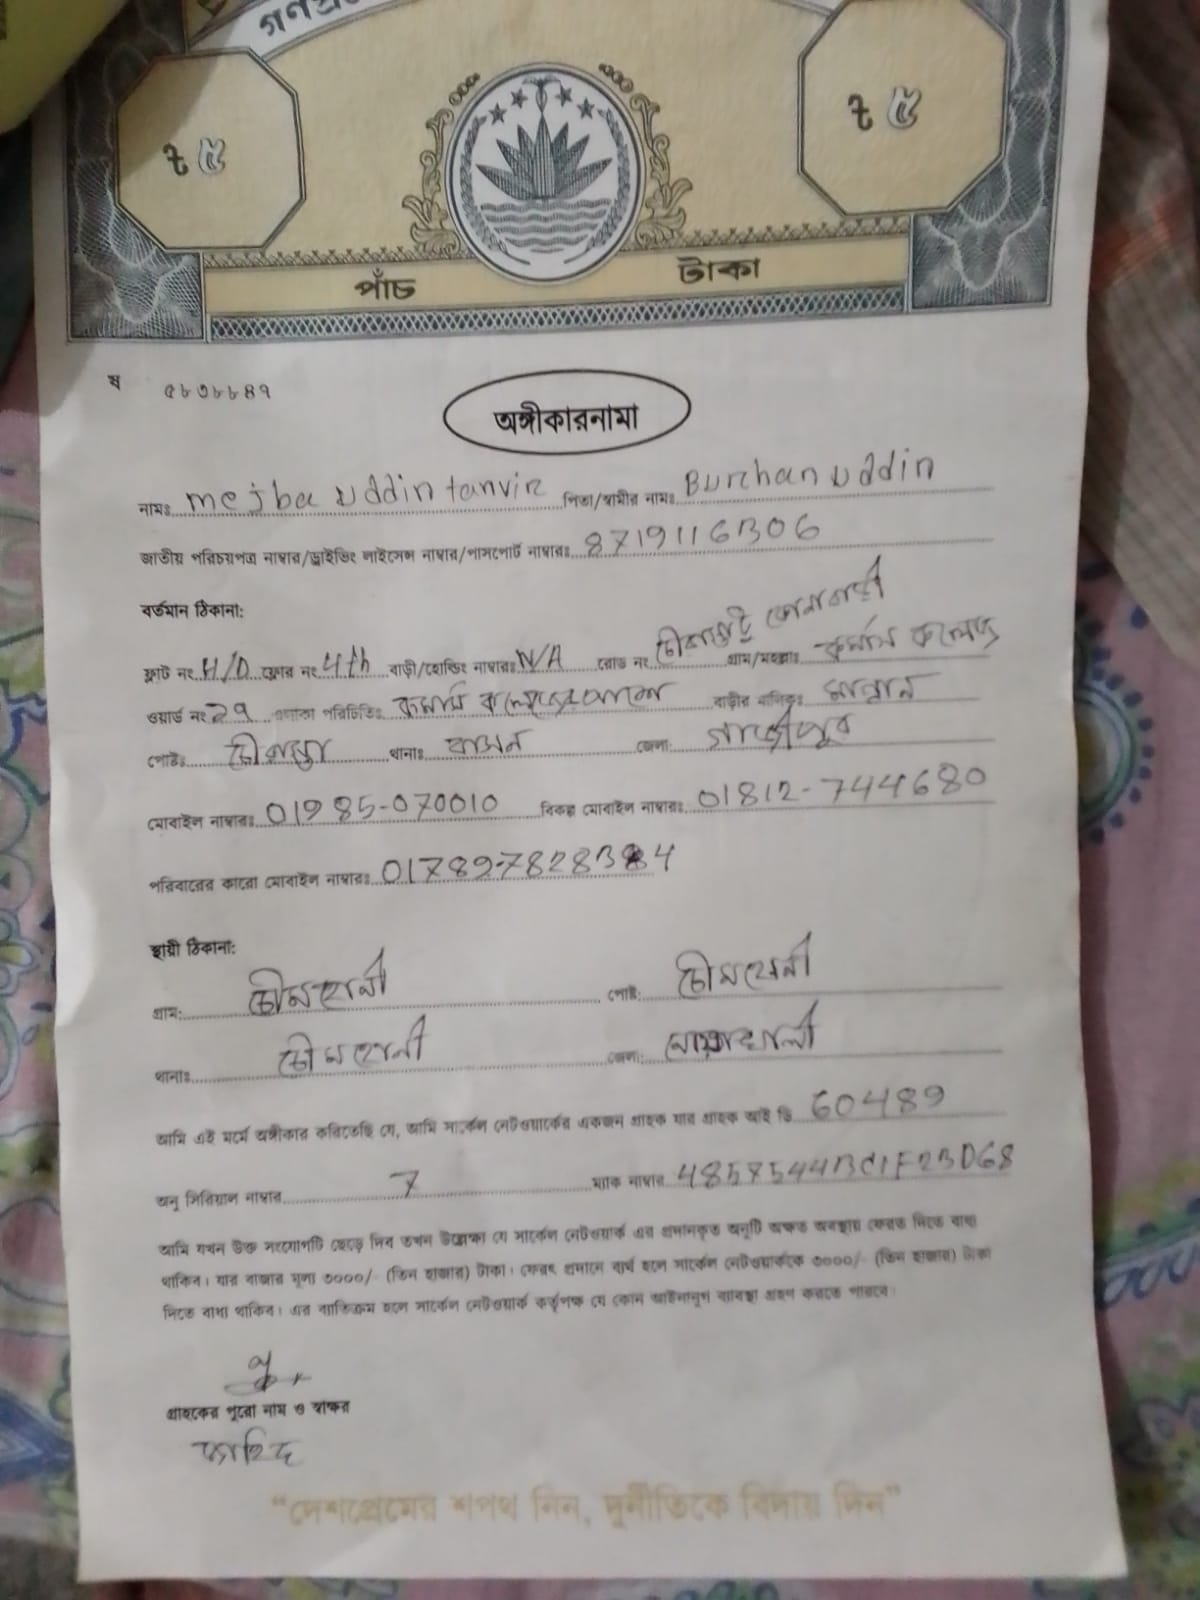 ৳ ৫ ৳ ৫
পাঁচ টাকা
ষ ৫৮৩৮৮৪৭
অঙ্গীকারনামা
নামঃ mejba uddin tanvir পিতা/স্বামীর নামঃ Burhan uddin
জাতীয় পরিচয়পত্র নাম্বার/ড্রাইভিং লাইসেন্স নাম্বার/পাসপোর্ট নাম্বারঃ 8719116306
বর্তমান ঠিকানা:
ফ্লাট নং H/D ফ্লোর নং 4th বাড়ী/হোল্ডিং নাম্বারঃ N/A রোড নং গ্রাম/মহল্লাঃ কমার্স কলেজ
ওয়ার্ড নং 29 এলাকা পরিচিতিঃ কমার্স বাড়ীর মালিকঃ মান্নান
পোষ্টঃ চৌরাস্তা থানাঃ বাসন জেলা: গাজীপুর
মোবাইল নাম্বারঃ 01985-070010 বিকল্প মোবাইল নাম্বারঃ 01812-744680
পরিবারের কারো মোবাইল নাম্বারঃ
স্থায়ী ঠিকানা:
গ্রাম: চৌমুহনী পোষ্ট: চৌমুহনী
থানাঃ চৌমুহনী জেলা: নোয়াখালী
আমি এই মর্মে অঙ্গীকার করিতেছি যে, আমি সার্কেল নেটওয়ার্কের একজন গ্রাহক যার গ্রাহক আই ডি 60489
অনু সিরিয়াল নাম্বার 7 ম্যাক নাম্বার 48575443C1F23D68
আমি যখন উক্ত সংযোগটি ছেড়ে দিব তখন উল্লেক্ষ্য যে সার্কেল নেটওয়ার্ক এর প্রদানকৃত অনুটি অক্ষত অবস্থায় ফেরত দিতে বাধ্য
থাকিব। যার বাজার মূল্য ৩০০০/- (তিন হাজার) টাকা। ফেরৎ প্রদানে ব্যর্থ হলে সার্কেল নেটওয়ার্ককে ৩০০০/- (তিন হাজার) টাকা
দিতে বাধ্য থাকিব। এর ব্যতিক্রম হলে সার্কেল নেটওয়ার্ক কর্তৃপক্ষ যে কোন আইনানুগ ব্যবস্থা গ্রহণ করতে পারবে।
গ্রাহকের পুরো নাম ও স্বাক্ষর
“দেশপ্রেমের শপথ নিন, দুর্নীতিকে বিদায় দিন”